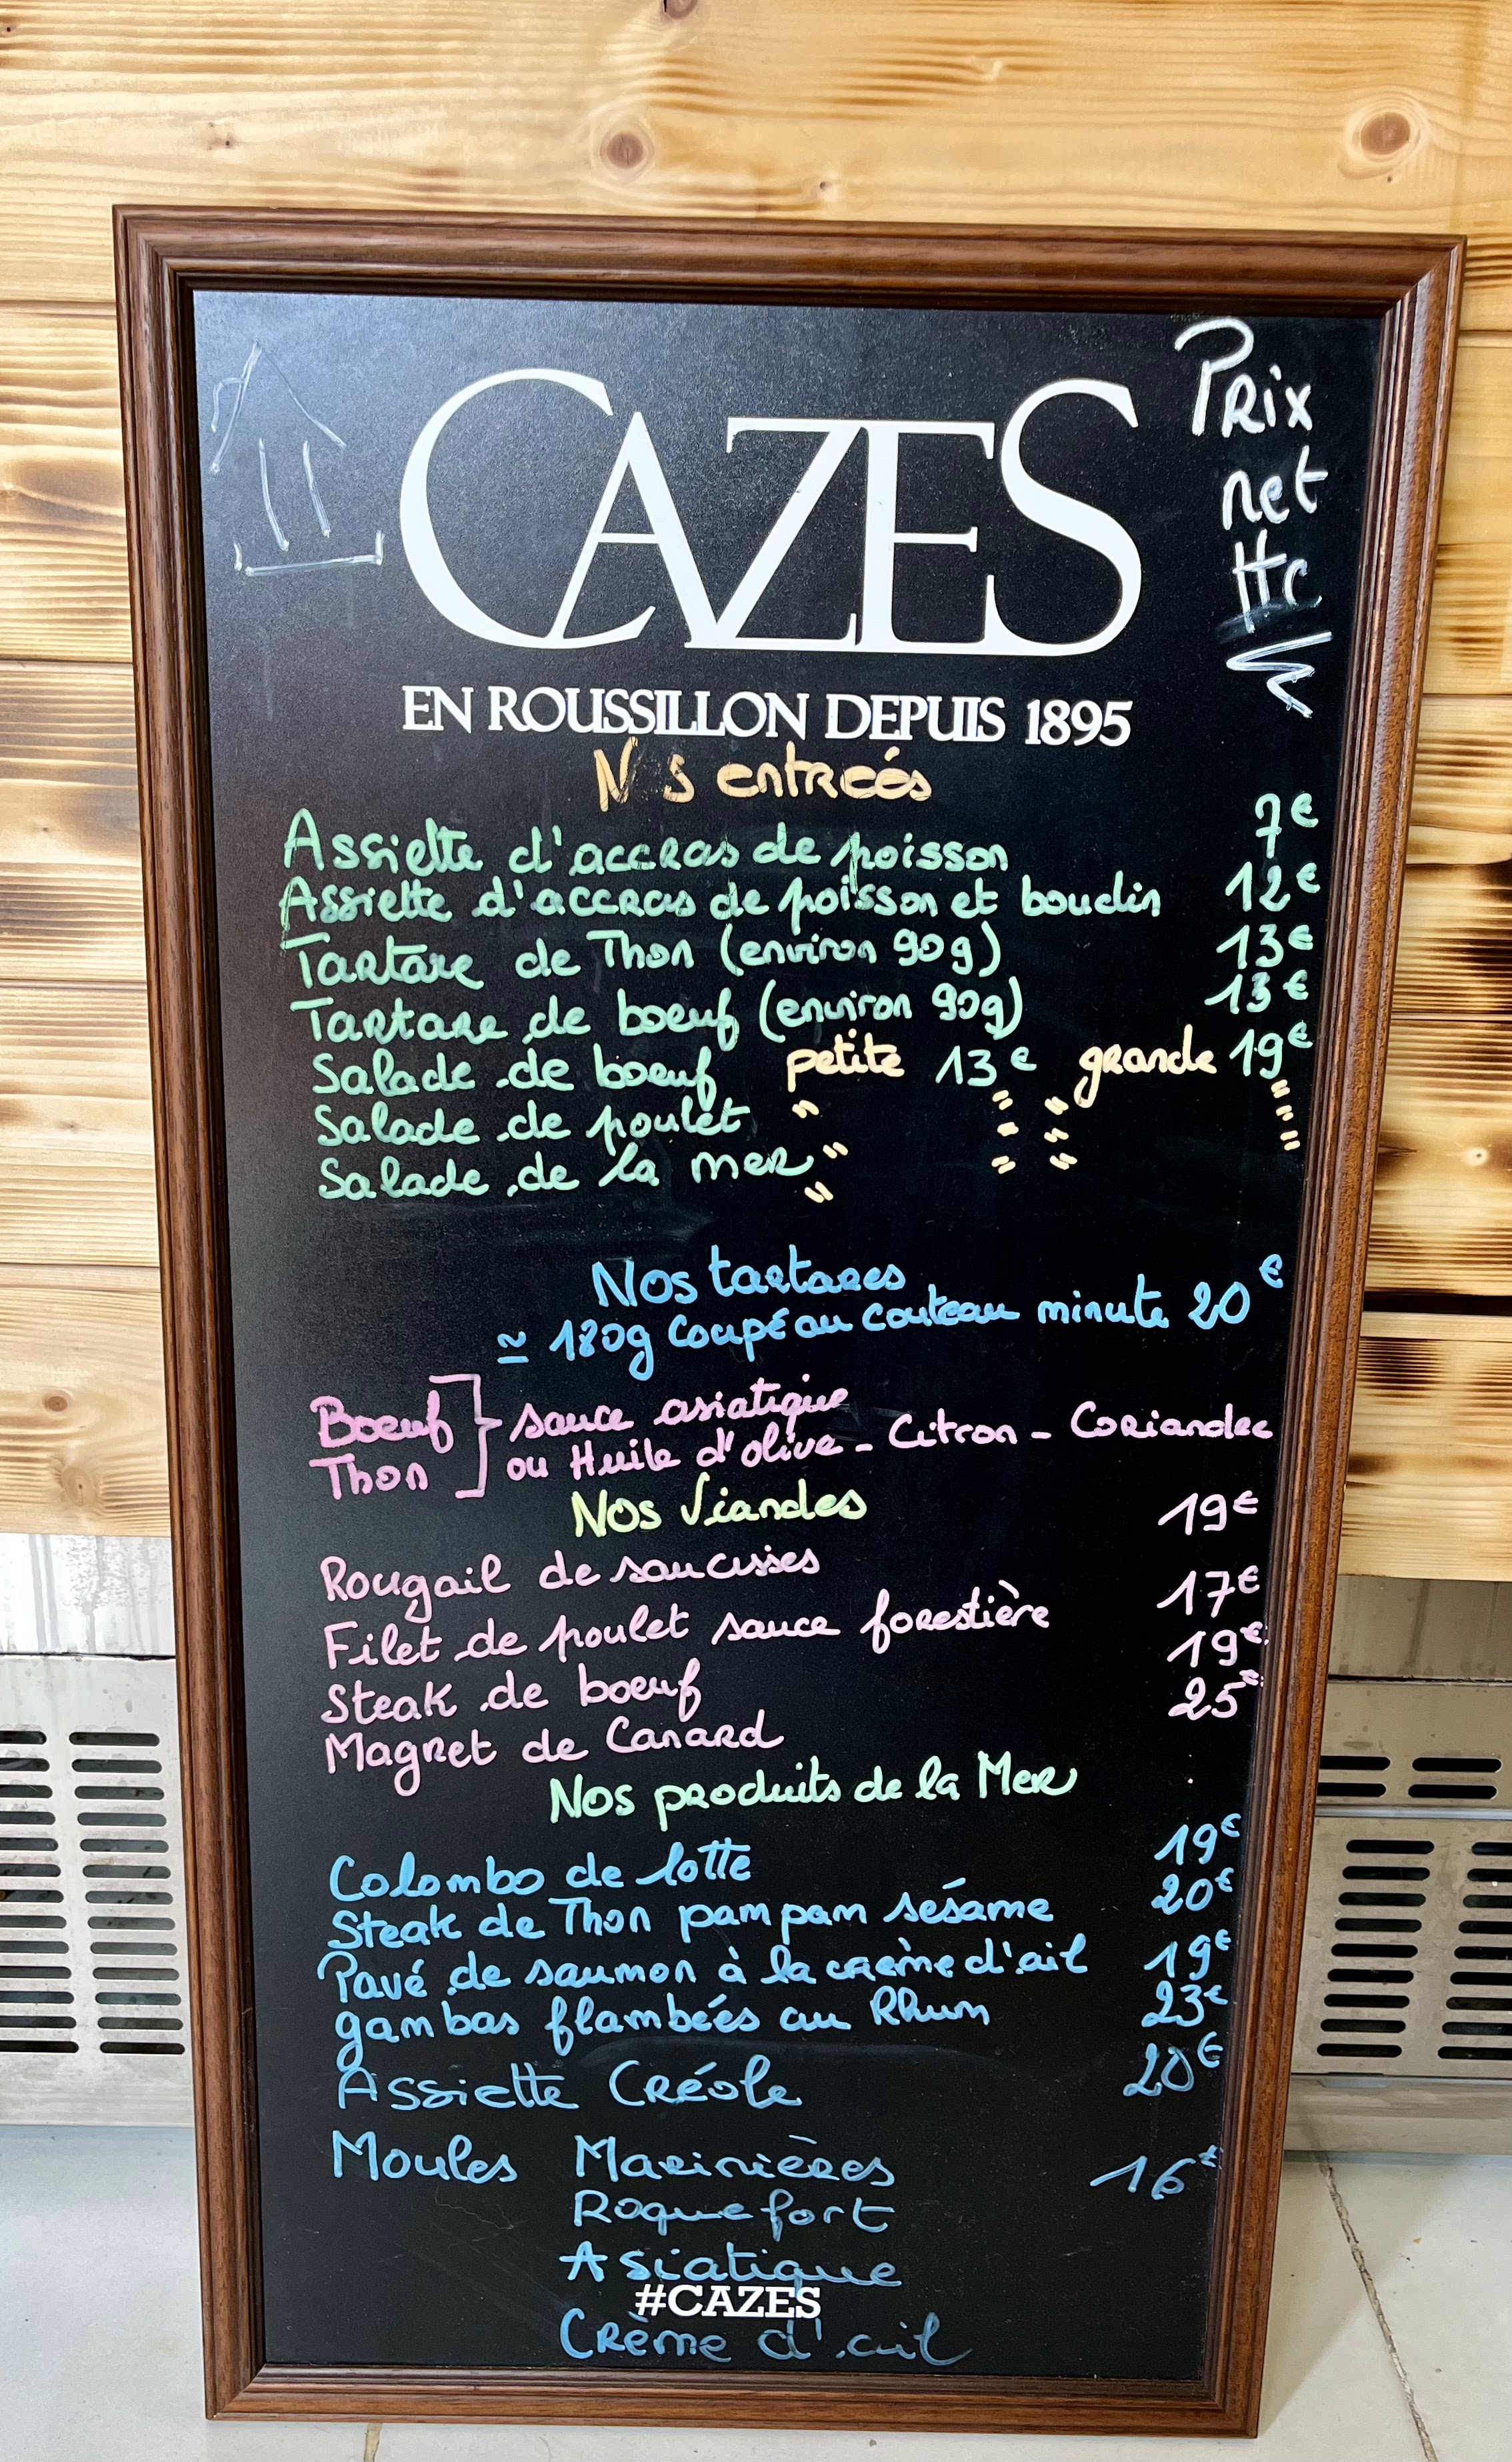 CAZES
Prix
net
EN ROUSSILLON DEPUIS 1895
N s entrées
Assiette d'accras de poisson 7€
Assiette d'accras de poisson et boudin 12€
Tartare de Thon (environ 90g) 13€
Tartare de boeuf (environ 90g) 13€
Salade de boeuf petite 13€ grande 19€
Salade de poulet " " " "
Salade de la mer " " " "
Nos tartares
≃ 180g coupé au couteau minute 20€
Boeuf } sauce asiatique
Thon } ou Huile d'olive - Citron - Coriandre
Nos Viandes
Rougail de saucisses 19€
Filet de poulet sauce forestière 17€
Steak de boeuf 19€
Magret de Canard 25€
Nos produits de la Mer
Colombo de lotte 19€
Steak de Thon pam pam sésame 20€
Pavé de saumon à la crème d'ail 19€
gambas flambées au Rhum 23€
Assiette Créole 20€
Moules Marinières 16€
Roquefort
Asiatique
#CAZES
Crème d'ail